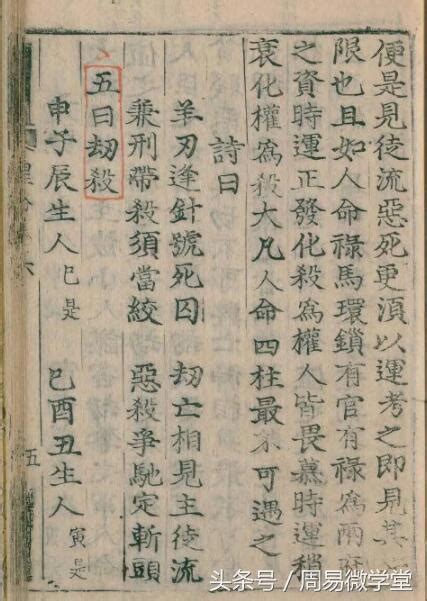 便是見徒流惡死更須以運考之即見其
限也且如人命祿馬環鎖有官有祿為兩
之資時運正發化殺為權人皆畏慕時運稍
衰化權為殺大凡人命四柱最不可遇之
詩曰
羊刃逢針號死囚 刧亡相見主徒流
乘刑帶殺須當絞 惡殺爭馳定斬頭
五曰刧殺
申子辰生人巳是 巳酉丑生人寅是
五
头条号/周易微学堂